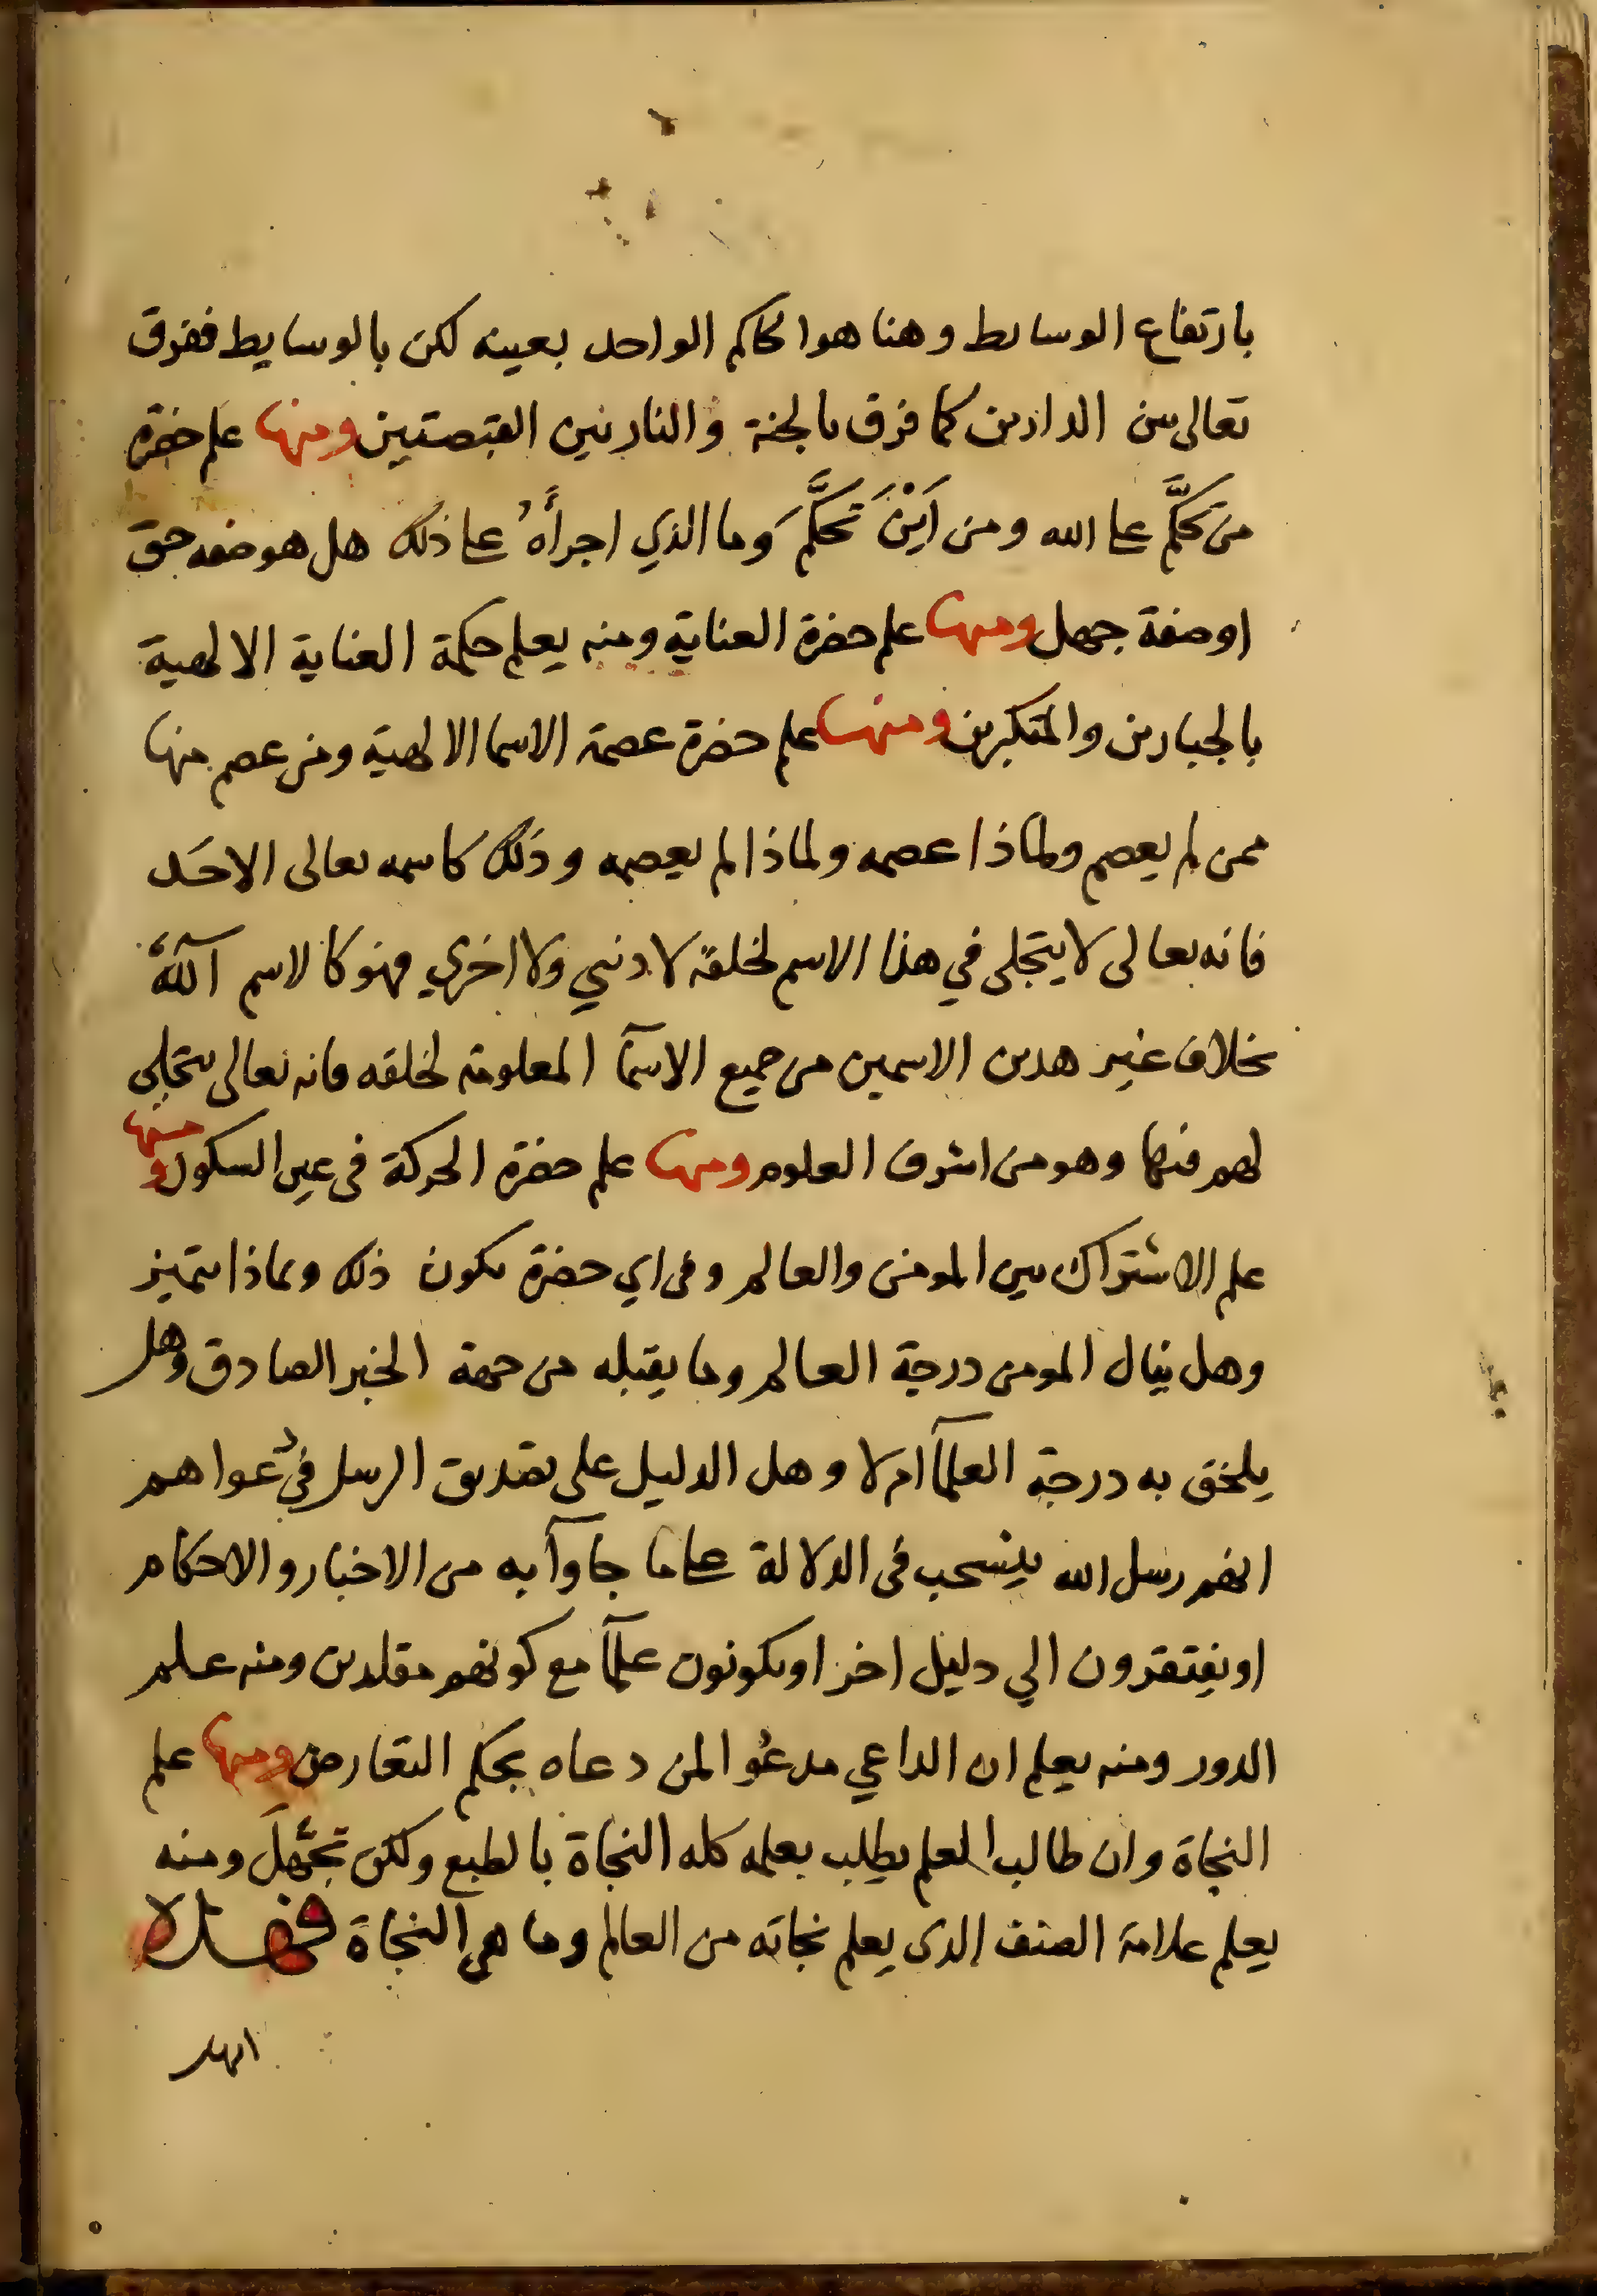 بارتفاع الوسايط وهنا هو الحاكم الواحد بعينه لكن بالوسايط ففرق
تعالى بين الدارين كما فرق بالجنة والنار بين القبضتين ومنها علم حضرة
من تحكَّم على الله ومن اَيْنَ تَحَكَّمَ وما الذي اجرأَهُ على ذلك هل هو صفه حق
او صفة جهل ومنها علم حضرة العناية ومنه يعلم حكمة العناية الالهية
بالجبارين والمتكبرين ومنها علم حضرة عصمة الاسما الالهية ومن عصم منها
ممن لم يعصم ولماذا عصمه ولماذا لم يعصمه وذلك كاسمه تعالى الاحَد
فانه تعالى لا يتجلى في هذا الاسم لخلقه لا دنيي ولا اخري فهو كالاسم اللّه
بخلاف غير هدين الاسمين من جميع الاسمآ المعلومة لخلقه فانه تعالى يتجلى
لهم فيها وهو من اشرف العلوم ومنها علم حضرة الحركة فى عين السكون ومنها
علم الاشتراك بين المومن والعالم وفى اي حضرة يكون ذلك وبماذا يتميز
وهل ينال المومن درجة العالم وما يقبله من جهة الخبر الصادق وهل
يلحق به درجة العلمآ ام لا وهل الدليل على تصديق الرسل في دعواهم
انهم رسل الله ينسحب فى الدلالة على ما جاوآ به من الاخبار والاحكام
او يفتقرون الي دليل اخر او يكونون علمآ مع كونهم مقلدين ومنه علم
الدور ومنه يعلم ان الداعي مدعُو لمن دعاه بحكم التعارض ومنها علم
النجاة وان طالب العلم يطلب بعلمه كله النجاة بالطبع ولكن تجَهَّلَ ومنه
يعلم علامة الصنف الدى يعلم نجاته من العالم وما هى النجاة فهذه